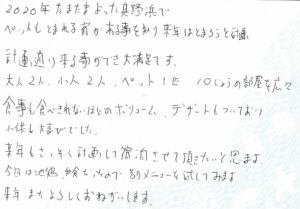 2020年たまたまよった真野浜で
ペットもとまれる宿がある事を知り来年はとまろうと計画
計画通り来る事ができ大満足です。
大人2人、小人2人、ペット1匹 10じょうの部屋を広々
食事も食べきれないほどのボリューム、デザートもついており
小供も大喜びでした。
来年もさっそく計画して宿泊させて頂きたいと思います。
今日は地鶏、だったので別メニューを試してみます
来年またよろしくおねがいします。